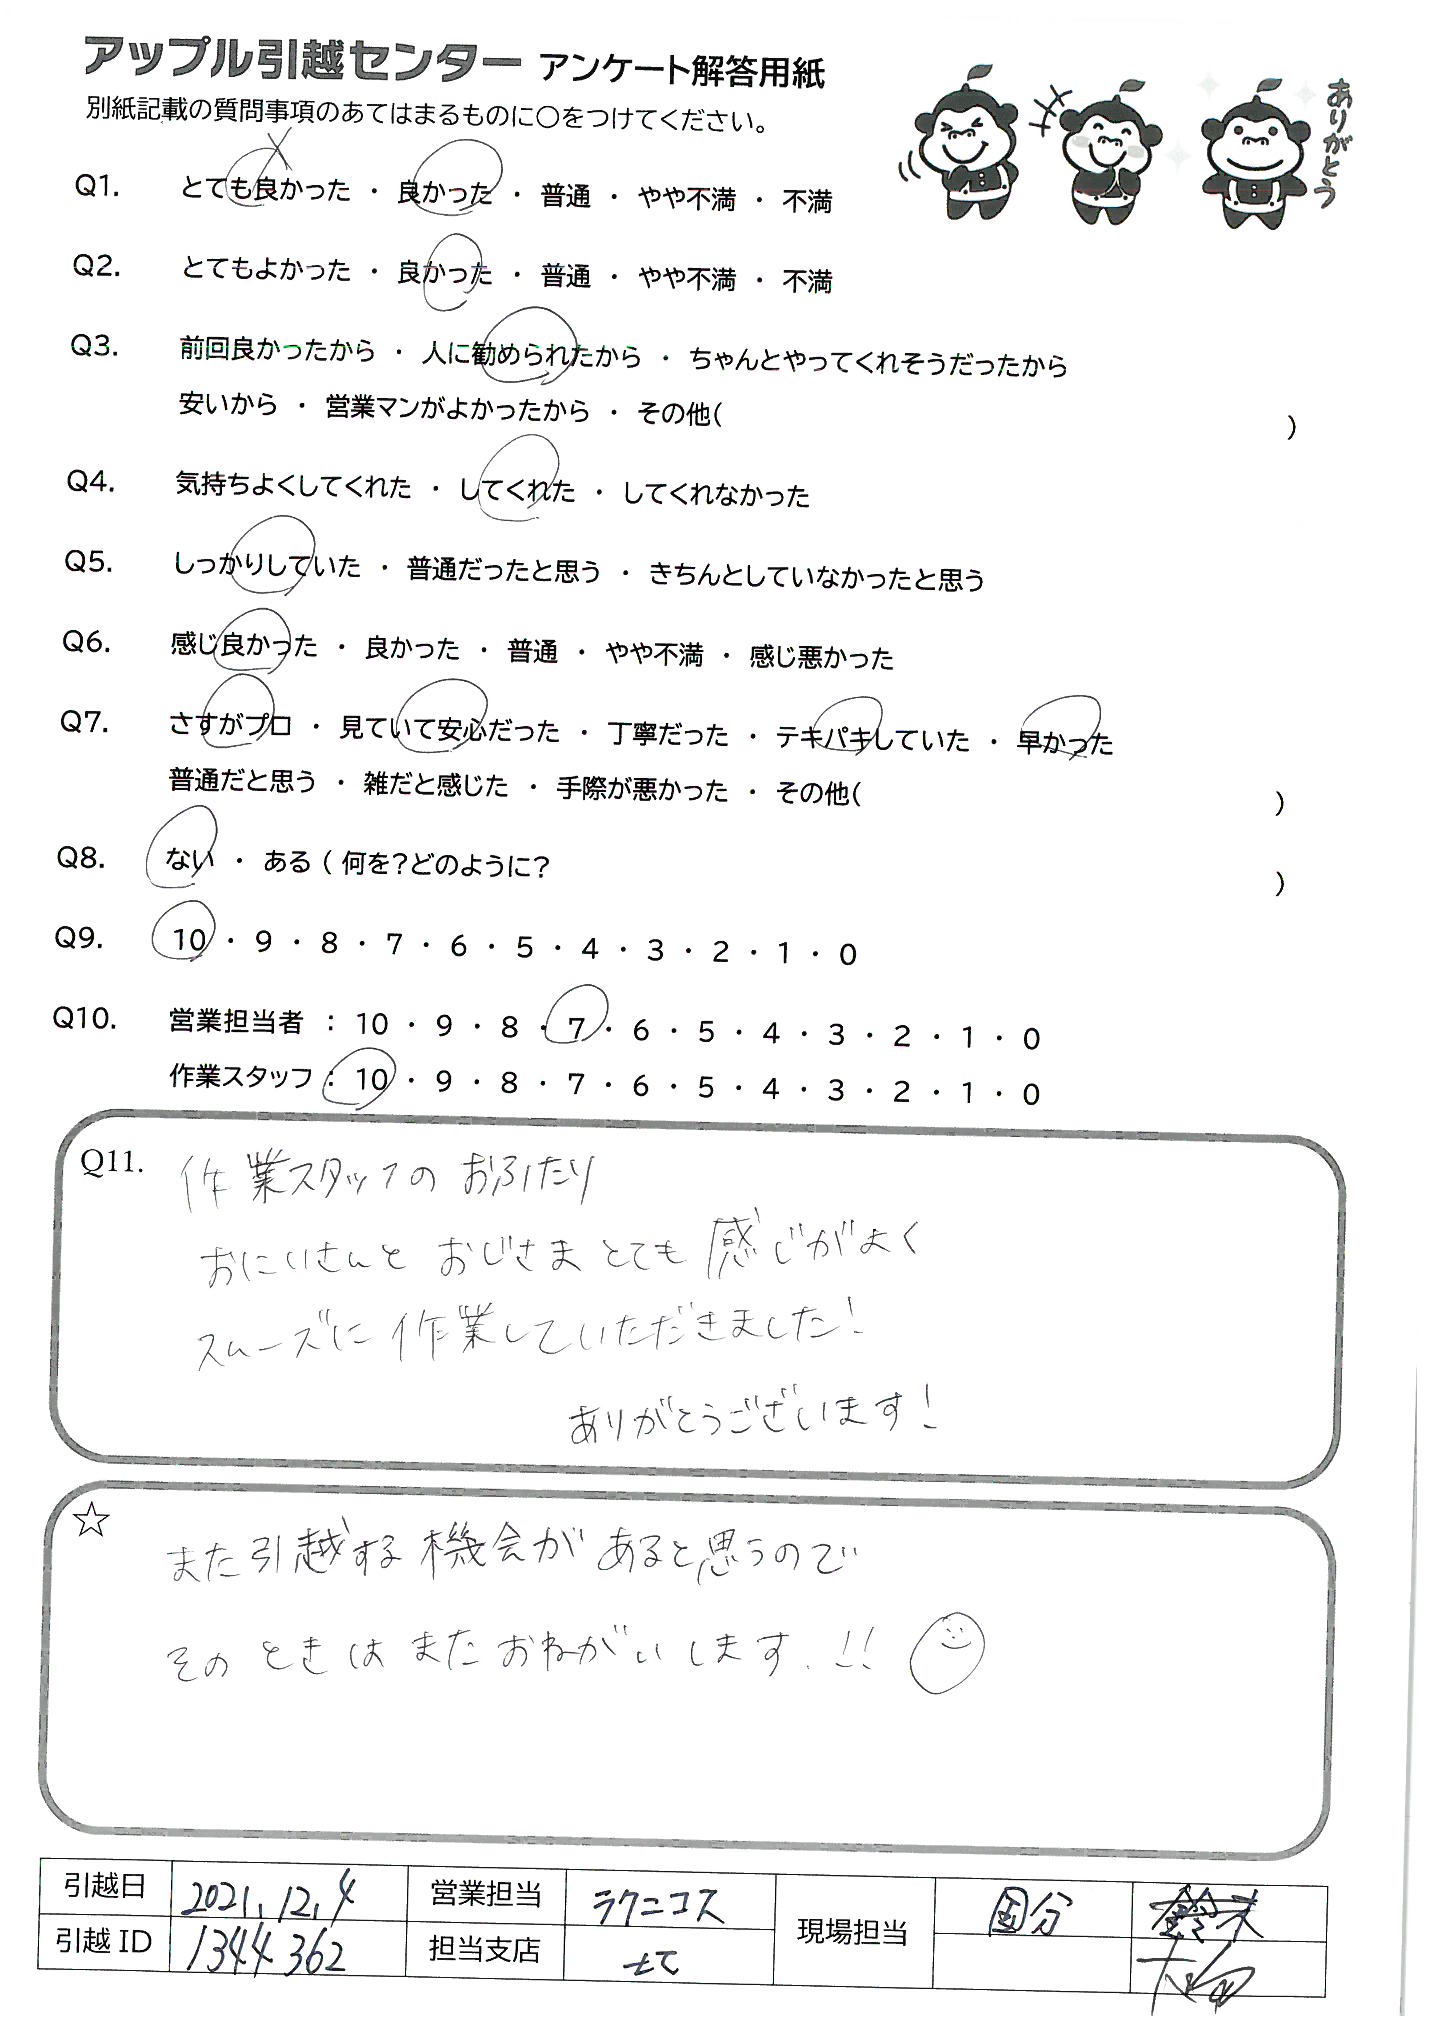 アップル引越センター アンケート解答用紙
別紙記載の質問事項のあてはまるものに○をつけてください。
ありがとう
Q1. とても良かった ・ 良かった ・ 普通 ・ やや不満 ・ 不満
Q2. とてもよかった ・ 良かった ・ 普通 ・ やや不満 ・ 不満
Q3. 前回良かったから ・ 人に勧められたから ・ ちゃんとやってくれそうだったから
安いから ・ 営業マンがよかったから ・ その他( )
Q4. 気持ちよくしてくれた ・ してくれた ・ してくれなかった
Q5. しっかりしていた ・ 普通だったと思う ・ きちんとしていなかったと思う
Q6. 感じ良かった ・ 良かった ・ 普通 ・ やや不満 ・ 感じ悪かった
Q7. さすがプロ ・ 見ていて安心だった ・ 丁寧だった ・ テキパキしていた ・ 早かった
普通だと思う ・ 雑だと感じた ・ 手際が悪かった ・ その他( )
Q8. ない ・ ある ( 何を?どのように? )
Q9. 10 ・ 9 ・ 8 ・ 7 ・ 6 ・ 5 ・ 4 ・ 3 ・ 2 ・ 1 ・ 0
Q10. 営業担当者 : 10 ・ 9 ・ 8 ・ 7 ・ 6 ・ 5 ・ 4 ・ 3 ・ 2 ・ 1 ・ 0
作業スタッフ : 10 ・ 9 ・ 8 ・ 7 ・ 6 ・ 5 ・ 4 ・ 3 ・ 2 ・ 1 ・ 0
Q11. 作業スタッフの おふたり
おにいさんと おじさま とても 感じがよく
スムーズに 作業していただきました!
ありがとうございます!
☆
また引越する機会が あると思うので
その ときは また おねがいします.!!
引越日 2021.12.4 営業担当 ラクニコス 現場担当 国分 鈴木
引越 ID 1344362 担当支店